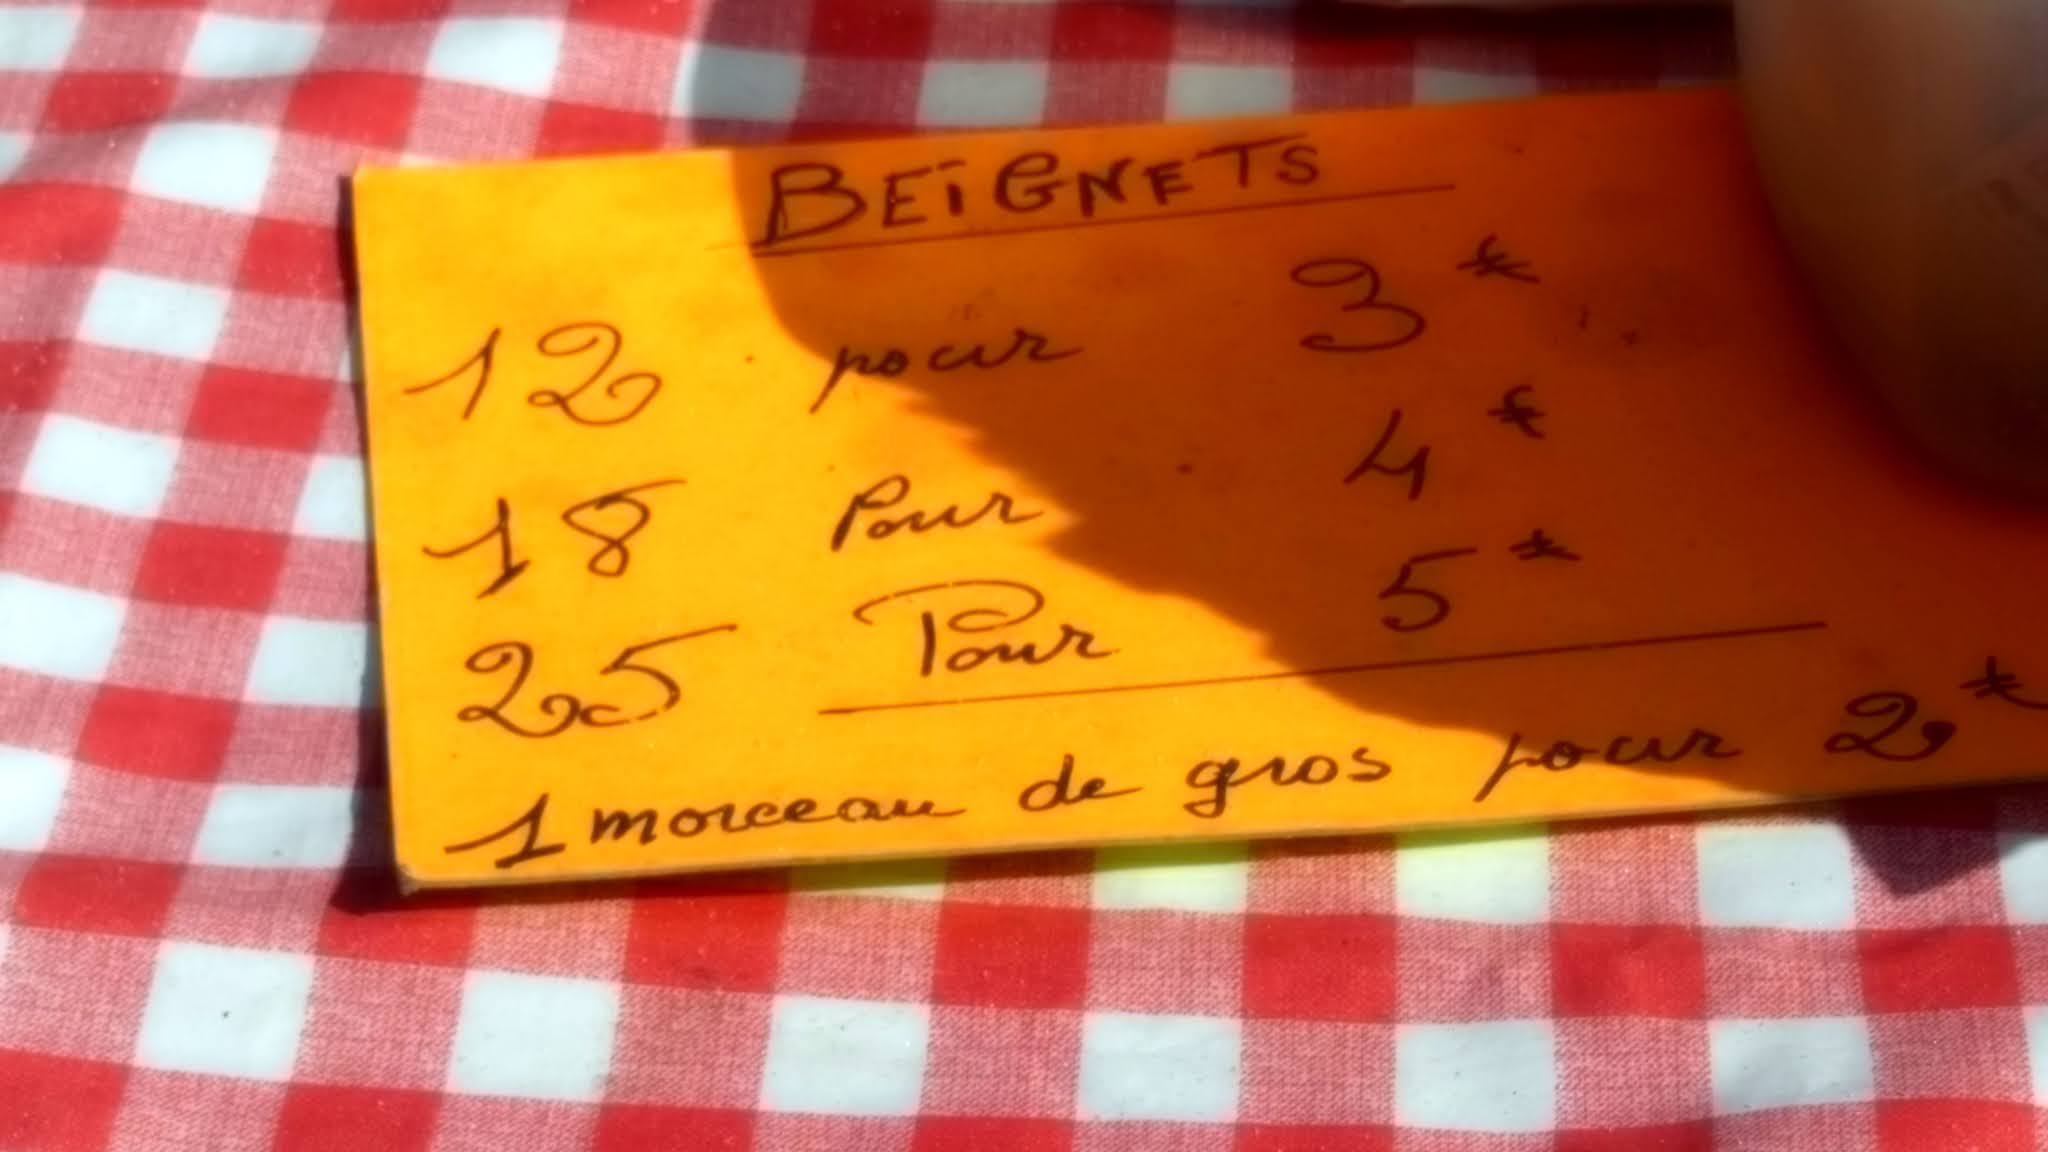 BEIGNETS
12 pour 3€
18 Pour 4€
25 Pour 5€
1 morceau de gros pour 2€